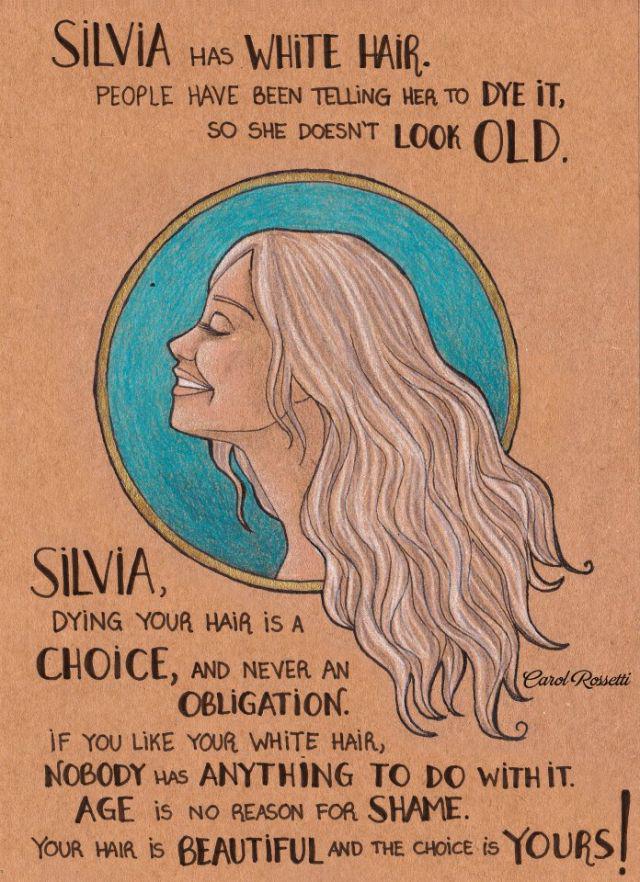 SiLViA HAS WHiTE HAiR.
PEOPLE HAVE BEEN TELLiNG HER TO DYE iT,
SO SHE DOESN'T LOOK OLD.
SiLViA,
DYiNG YOUR HAiR iS A
CHOiCE, AND NEVER AN
OBLiGATiON.
Carol Rossetti
iF YOU LiKE YOUR WHiTE HAiR,
NOBODY HAS ANYTHiNG TO DO WiTH iT.
AGE iS NO REASON FOR SHAME.
YOUR HAiR iS BEAUTiFUL AND THE CHOiCE iS YOURS!